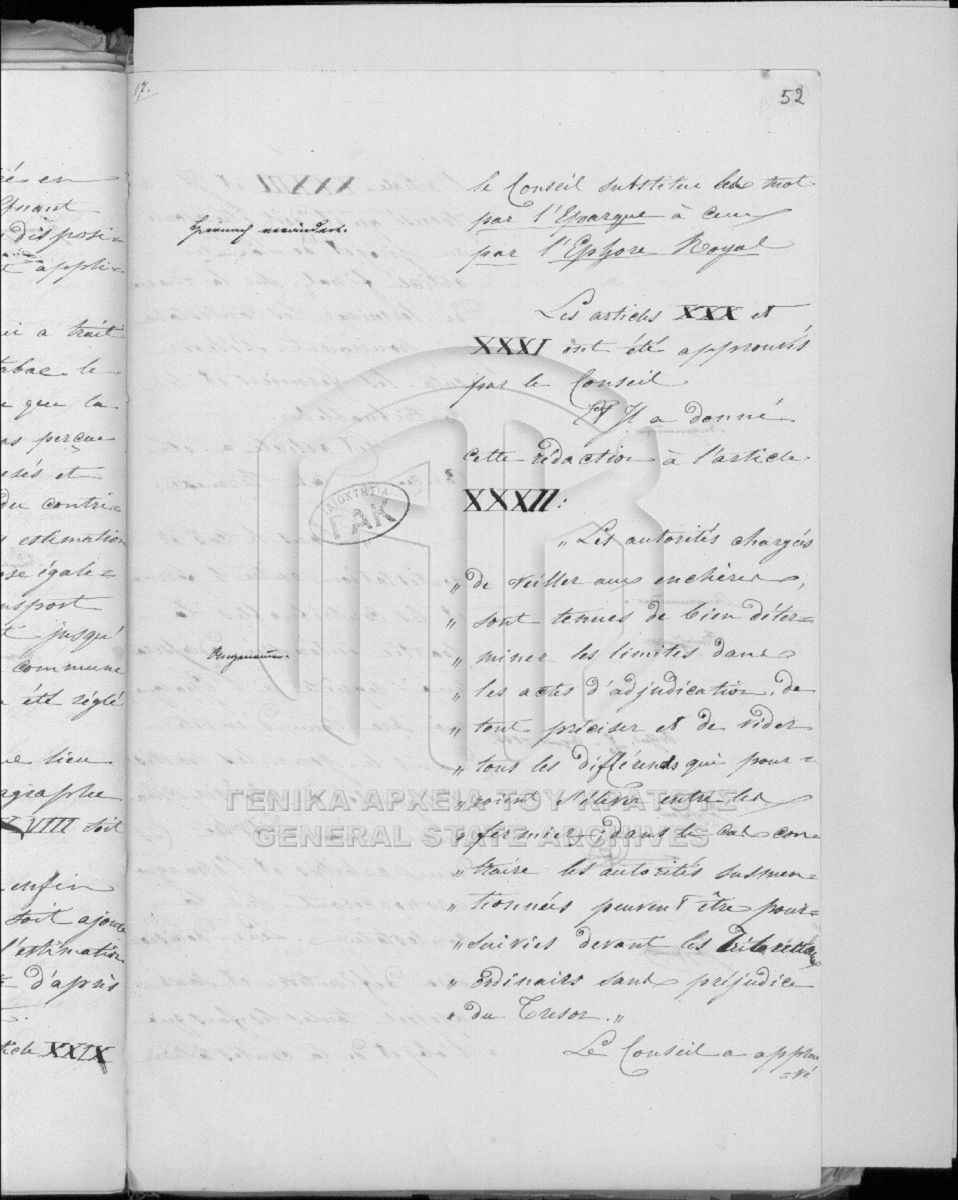 17.
52
le Conseil substitue les mot
par l'Eparque à ceux
par l'Ephore Royal
Hiernach verändert.
Les articles XXX et
XXXI ont été approuvés
par le Conseil.
Il a donné
cette rédaction à l'article
XXXII:
„ Les autorités chargés
„ de veiller aux enchères,
„ sont tenues de bien déter=
„ miner les limites dans
Angenommen.
„ les actes d'adjudication, de
„ tout préciser et de vider
„ tous les différends qui pour=
„ roient s'élever entre les
„ fermiers; dans le cas con
„ traire les autorités susmen=
„ tionnées peuvent être pour=
„ suivies devant les Tribunaux
„ ordinairs sans préjudice
„ du Tresor.„
Le Conseil a approu
=vé
iés en
disposi=
t appli=
ui a trait
tabac le
e que la
as perçue
et
du contri=
s estimation
ose égale=
nsport
t jusqu'
commune
été réglé
ue lieu
agraphe
XVIII soit
enfin
soit ajouté
l'estimation
d'après
ticle XXIX
ΙΔΙΟΚΤΗΣΙΑ
ΓΑΚ
ΓΕΝΙΚΑ ΑΡΧΕΙΑ ΤΟΥ ΚΡΑΤΟΥΣ
GENERAL STATE ARCHIVES